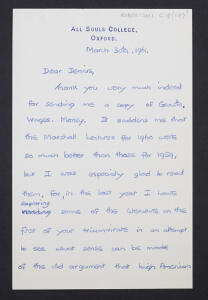 ALL SOULS COLLEGE,
OXFORD.
March 30th, 1961.
Dear Jenius,
Thank you very much indeed
for sending me a copy of Growth,
Wages, Money. It saddens me that
the Marshall Lectures for 1960 were
so much better than those for 1959,
but I was especially glad to read
them, for, in the last year I have
exploring
some of the literature on the
first of your triumvirate in an attempt
to see what sense can be made
of the old argument that high American